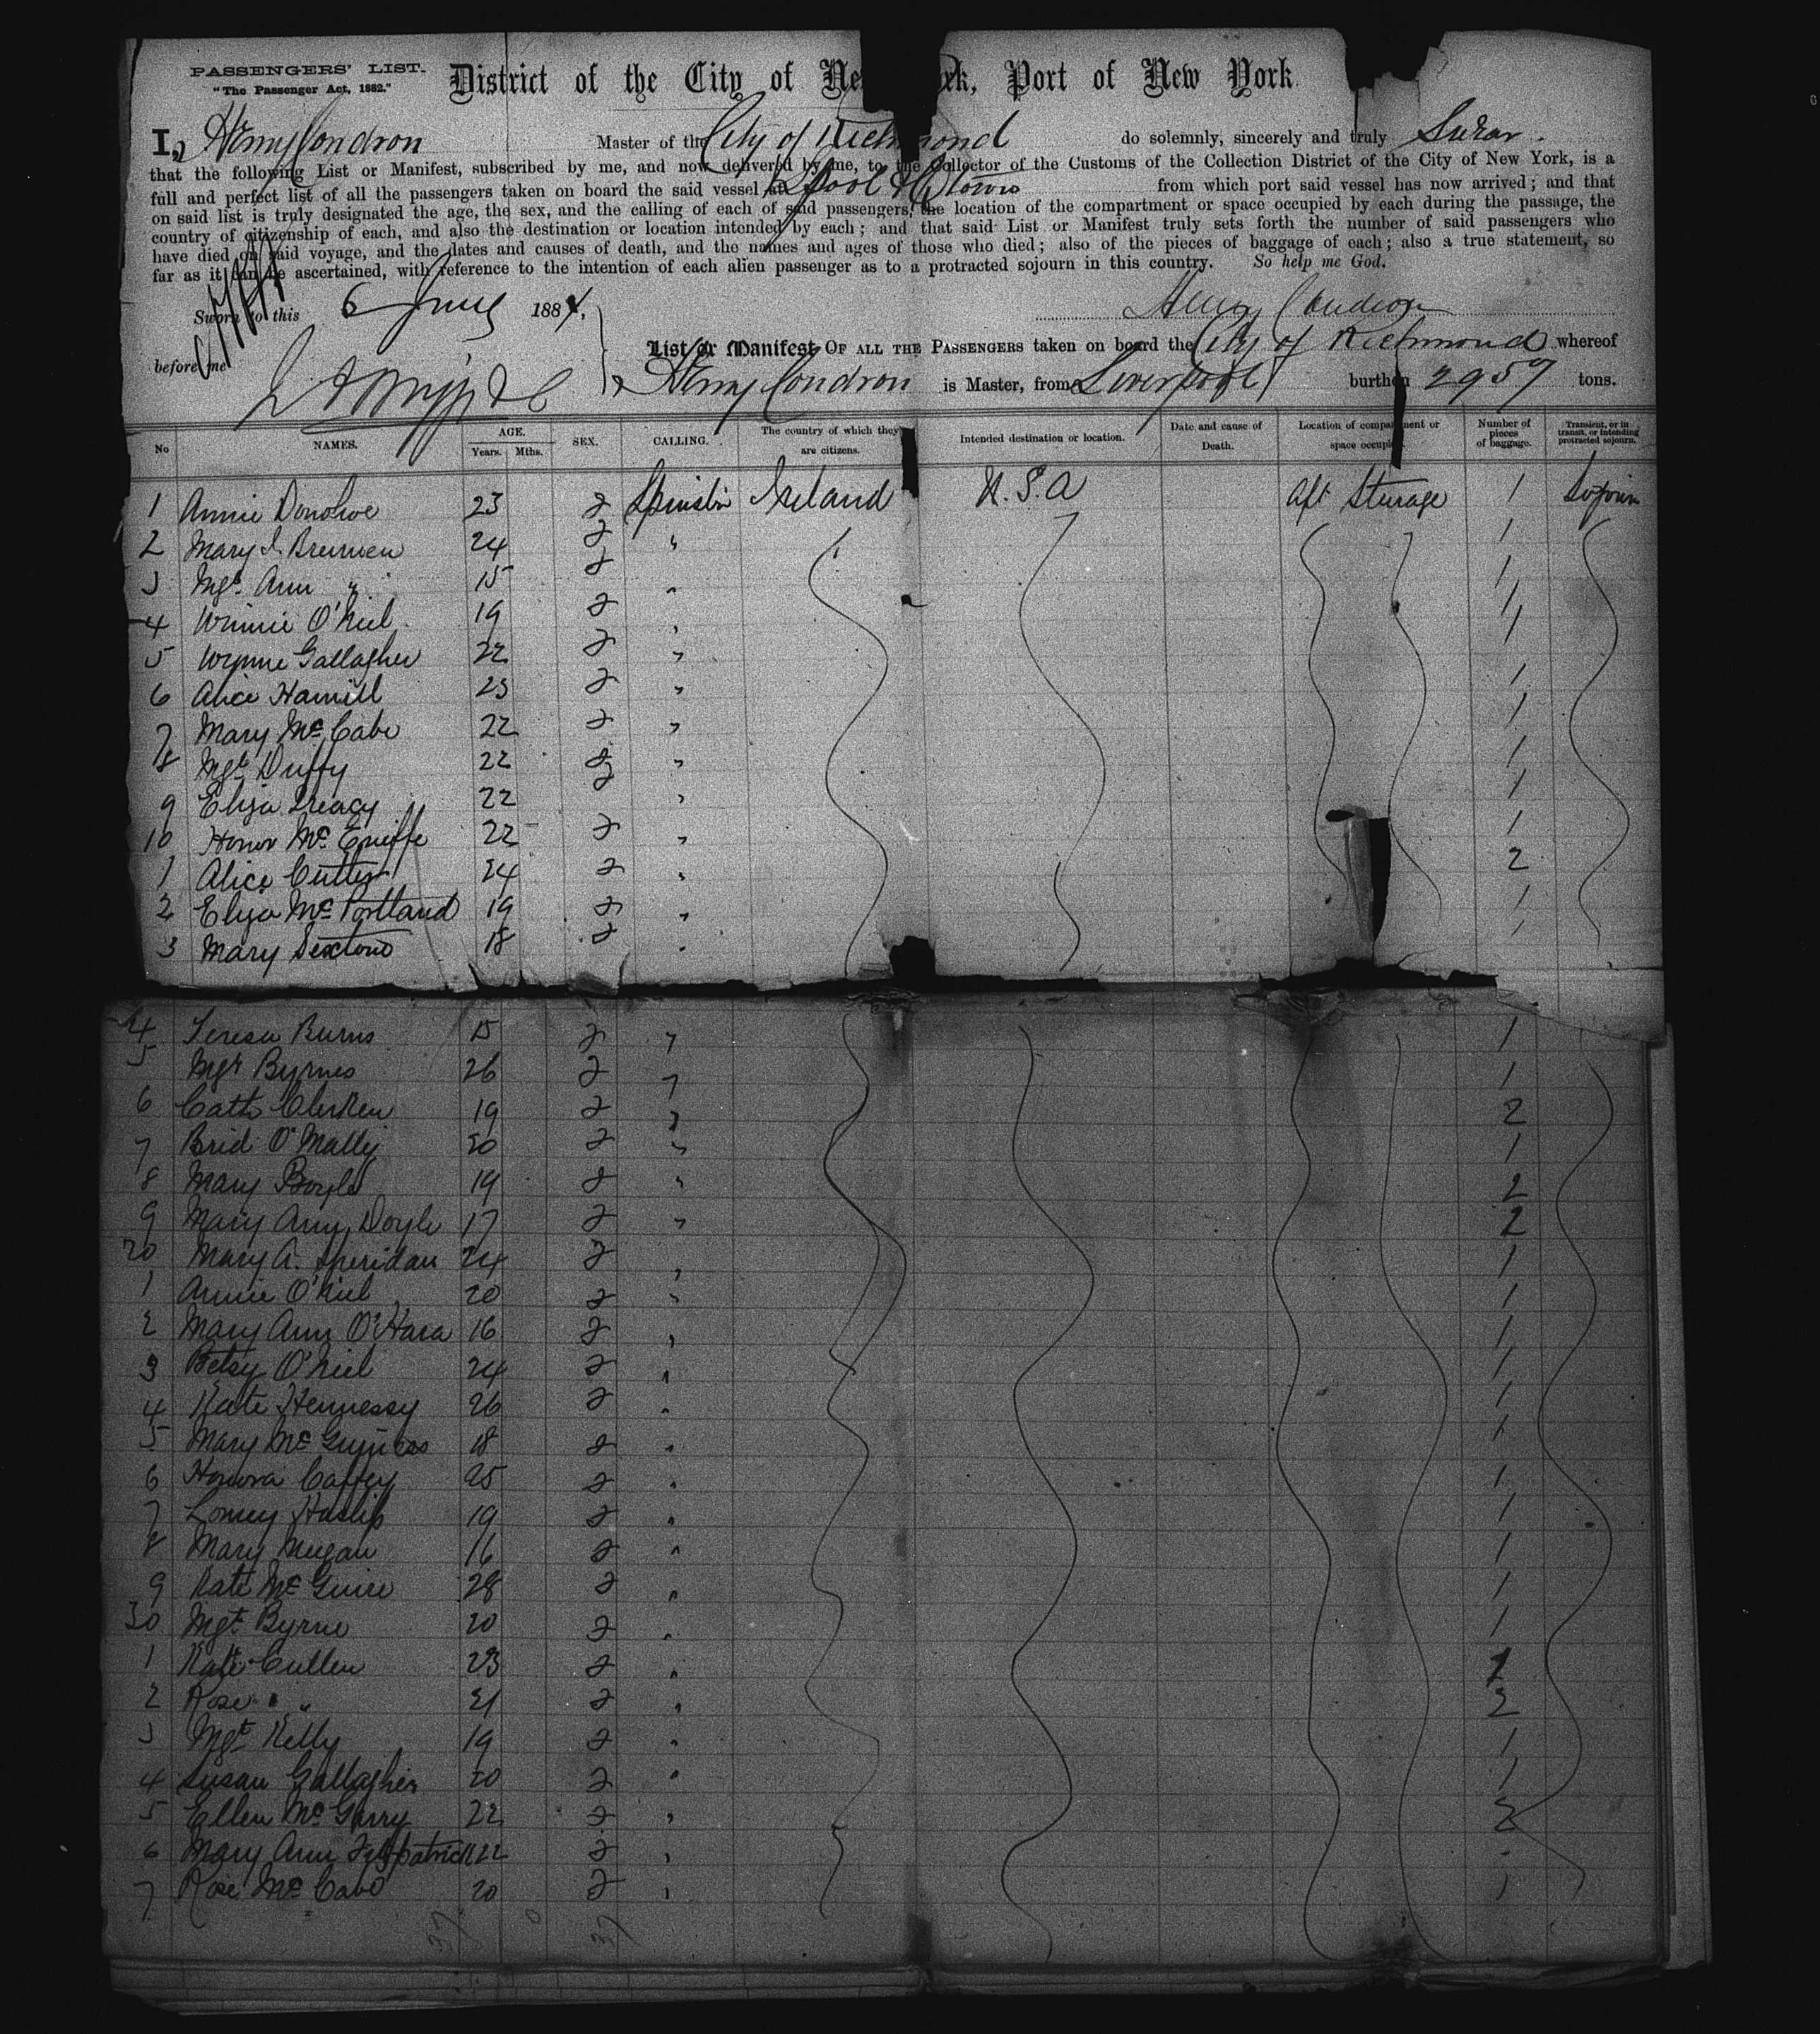 PASSENGERS' LIST.
"The Passenger Act, 1882."
District of the City of New York, Port of New York
I, Henry Condron Master of the City of Richmond do solemnly, sincerely and truly Swear
that the following List or Manifest, subscribed by me, and now delivered by me, to the Collector of the Customs of the Collection District of the City of New York, is a
full and perfect list of all the passengers taken on board the said vessel at L'pool & Q'town from which port said vessel has now arrived; and that
on said list is truly designated the age, the sex, and the calling of each of said passengers, the location of the compartment or space occupied by each during the passage, the
country of citizenship of each, and also the destination or location intended by each; and that said List or Manifest truly sets forth the number of said passengers who
have died on said voyage, and the dates and causes of death, and the names and ages of those who died; also of the pieces of baggage of each; also a true statement, so
far as it can be ascertained, with reference to the intention of each alien passenger as to a protracted sojourn in this country. So help me God.
Sworn to this 6 June 1884, Henry Condron
before me
List or Manifest OF ALL THE PASSENGERS taken on board the City of Richmond whereof
Henry Condron is Master, from Liverpool burthen 2957 tons.
No NAMES. AGE. Years. Mths. SEX. CALLING. The country of which they are citizens. Intended destination or location. Date and cause of Death. Location of compartment or space occupied. Number of pieces of baggage. Transient, or in transit, or intending protracted sojourn.
1 Annie Donohoe 23 f Spinster Ireland U.S.A Aft Sturage 1 Sojourn
2 Mary J. Brennen 24 f " 1
3 Mgt. Ann " 15 f " 1
4 Winnie O'Niel 19 f " 1
5 Wynne Gallagher 22 f " 1
6 Alice Hamill 23 f " 1
7 Mary McCabe 22 f " 1
8 Mgt Duffy 22 f " 1
9 Eliza Treacy 22 f " 1
10 Honor McEniffe 22 f " 1
1 Alice Cutter 24 f " 2
2 Eliza McPortland 19 f " 1
3 Mary Sextono 18 f " 1
4 Teresa Burns 15 f " 1
5 Mgt Byrnes 26 f " 1
6 Cath Clerken 19 f " 2
7 Brid O'Mally 20 f " 1
8 Mary Boyle 19 f " 2
9 Mary Ann Doyle 17 f " 2
20 Mary A. Sheridan 24 f " 1
1 Annie O'Niel 20 f " 1
2 Mary Ann O'Hara 16 f " 1
3 Betsy O'Niel 24 f " 1
4 Kate Hennessy 26 f " 1
5 Mary McGuiness 18 f " 1
6 Honora Caffey 25 f " 1
7 Haslip 19 f " 1
8 Mary Meegan 16 f " 1
9 Kate McGuire 28 f " 1
30 Mgt. Byrne 20 f " 1
1 Kate Cullen 23 f "
2 Rose " 21 f " 2
3 Mgt Kelly 19 f " 1
4 Susan Gallagher 20 f " 1
5 Ellen McGarry 22 f " 2
6 Mary Ann Fitzpatrick 22 f "
7 Rose McCabe 20 f " 1
37 0 37